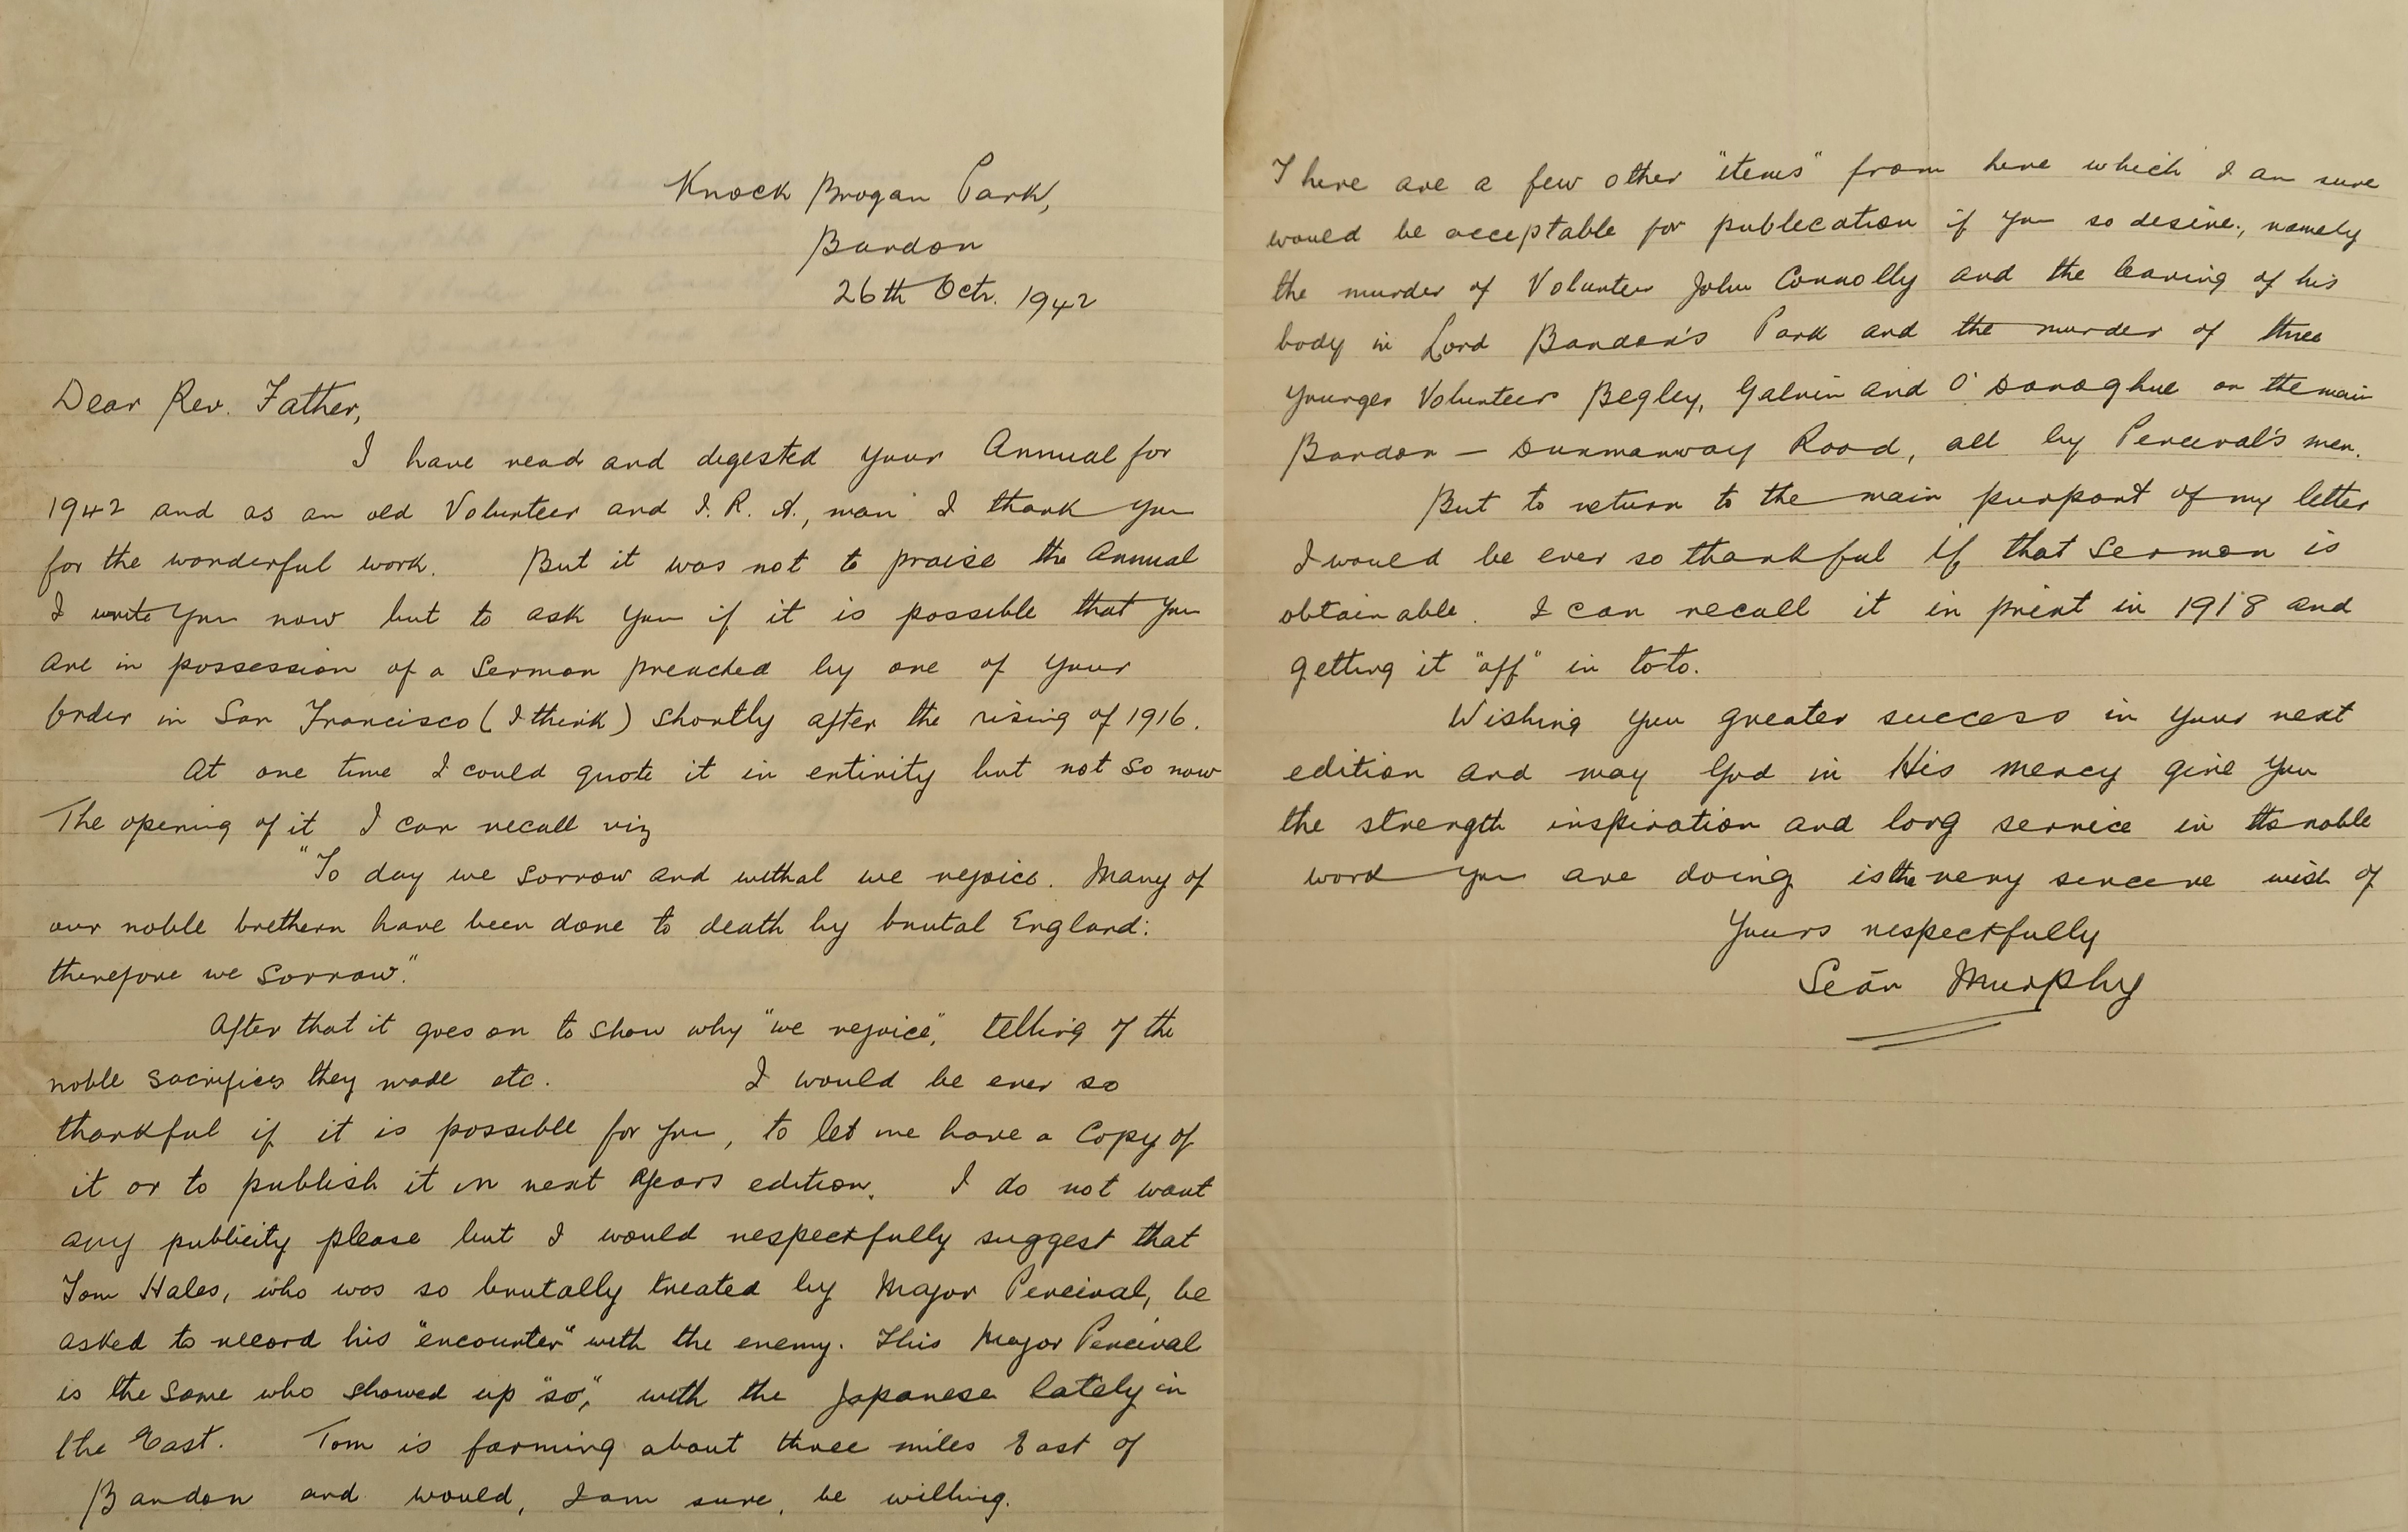 Knock Brogan Park,
Bandon
26th Octr. 1942
Dear Rev. Father,
I have read and digested your Annual for
1942 and as an old Volunteer and I. R. A., man I thank you
for the wonderful work. But it was not to praise the Annual
I write you now but to ask you if it is possible that you
are in possession of a Sermon preached by one of your
Order in San Francisco (I think) shortly after the rising of 1916.
At one time I could quote it in entirity but not so now
The opening of it I can recall viz
"To day we sorrow and withal we rejoice. Many of
our noble brethern have been done to death by brutal England:
therefore we sorrow".
After that it goes on to show why "we rejoice", telling of the
noble sacrifices they made etc. I would be ever so
thankful if it is possible for you, to let me have a Copy of
it or to publish it in next years edition. I do not want
any publicity please but I would respectfully suggest that
Tom Hales, who was so brutally treated by Major Percival, be
asked to record his "encounter" with the enemy. This Major Percival
is the same who showed up "so", with the Japanese lately in
the East. Tom is farming about three miles East of
Bandon and would, I am sure, be willing.
There are a few other "items" from here which I am sure
would be acceptable for publecation if you so desire, namely
the murder of Volunteer John Connolly and the leaving of his
body in Lord Bandon's Park and the murder of three
younger Volunteers Begley, Galvin and O'Donoghue on the main
Bandon - Dunmanway Road, all by Percival's men.
But to return to the main purport of my letter
I would be ever so thankful if that Sermon is
obtainable. I can recall it in print in 1918 and
getting it "off" in toto.
Wishing you greater success in your next
edition and may God in His mercy give you
the strength inspiration and long service in the noble
word you are doing is the very sincere wish of
Yours respectfully
Seán Murphy